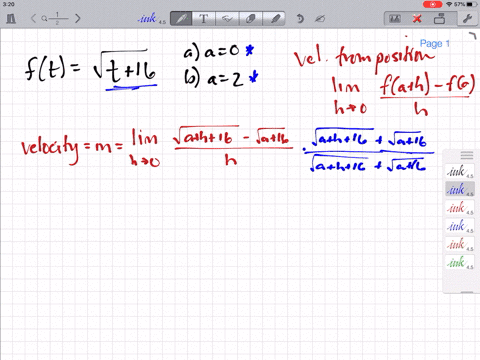 3:20
57%
1/2
ink 4.5
Page 1
f(t) = √(t+16)
a) a=0 *
b) a=2 *
Vel. from position
lim h→0 (f(a+h) - f(a))/h
velocity = m = lim h→0 (√(a+h+16) - √(a+16))/h · (√(a+h+16) + √(a+16))/(√(a+h+16) + √(a+16))
ink 4.5
ink 4.5
ink 4.5
ink 4.5
ink 4.5
ink 4.5